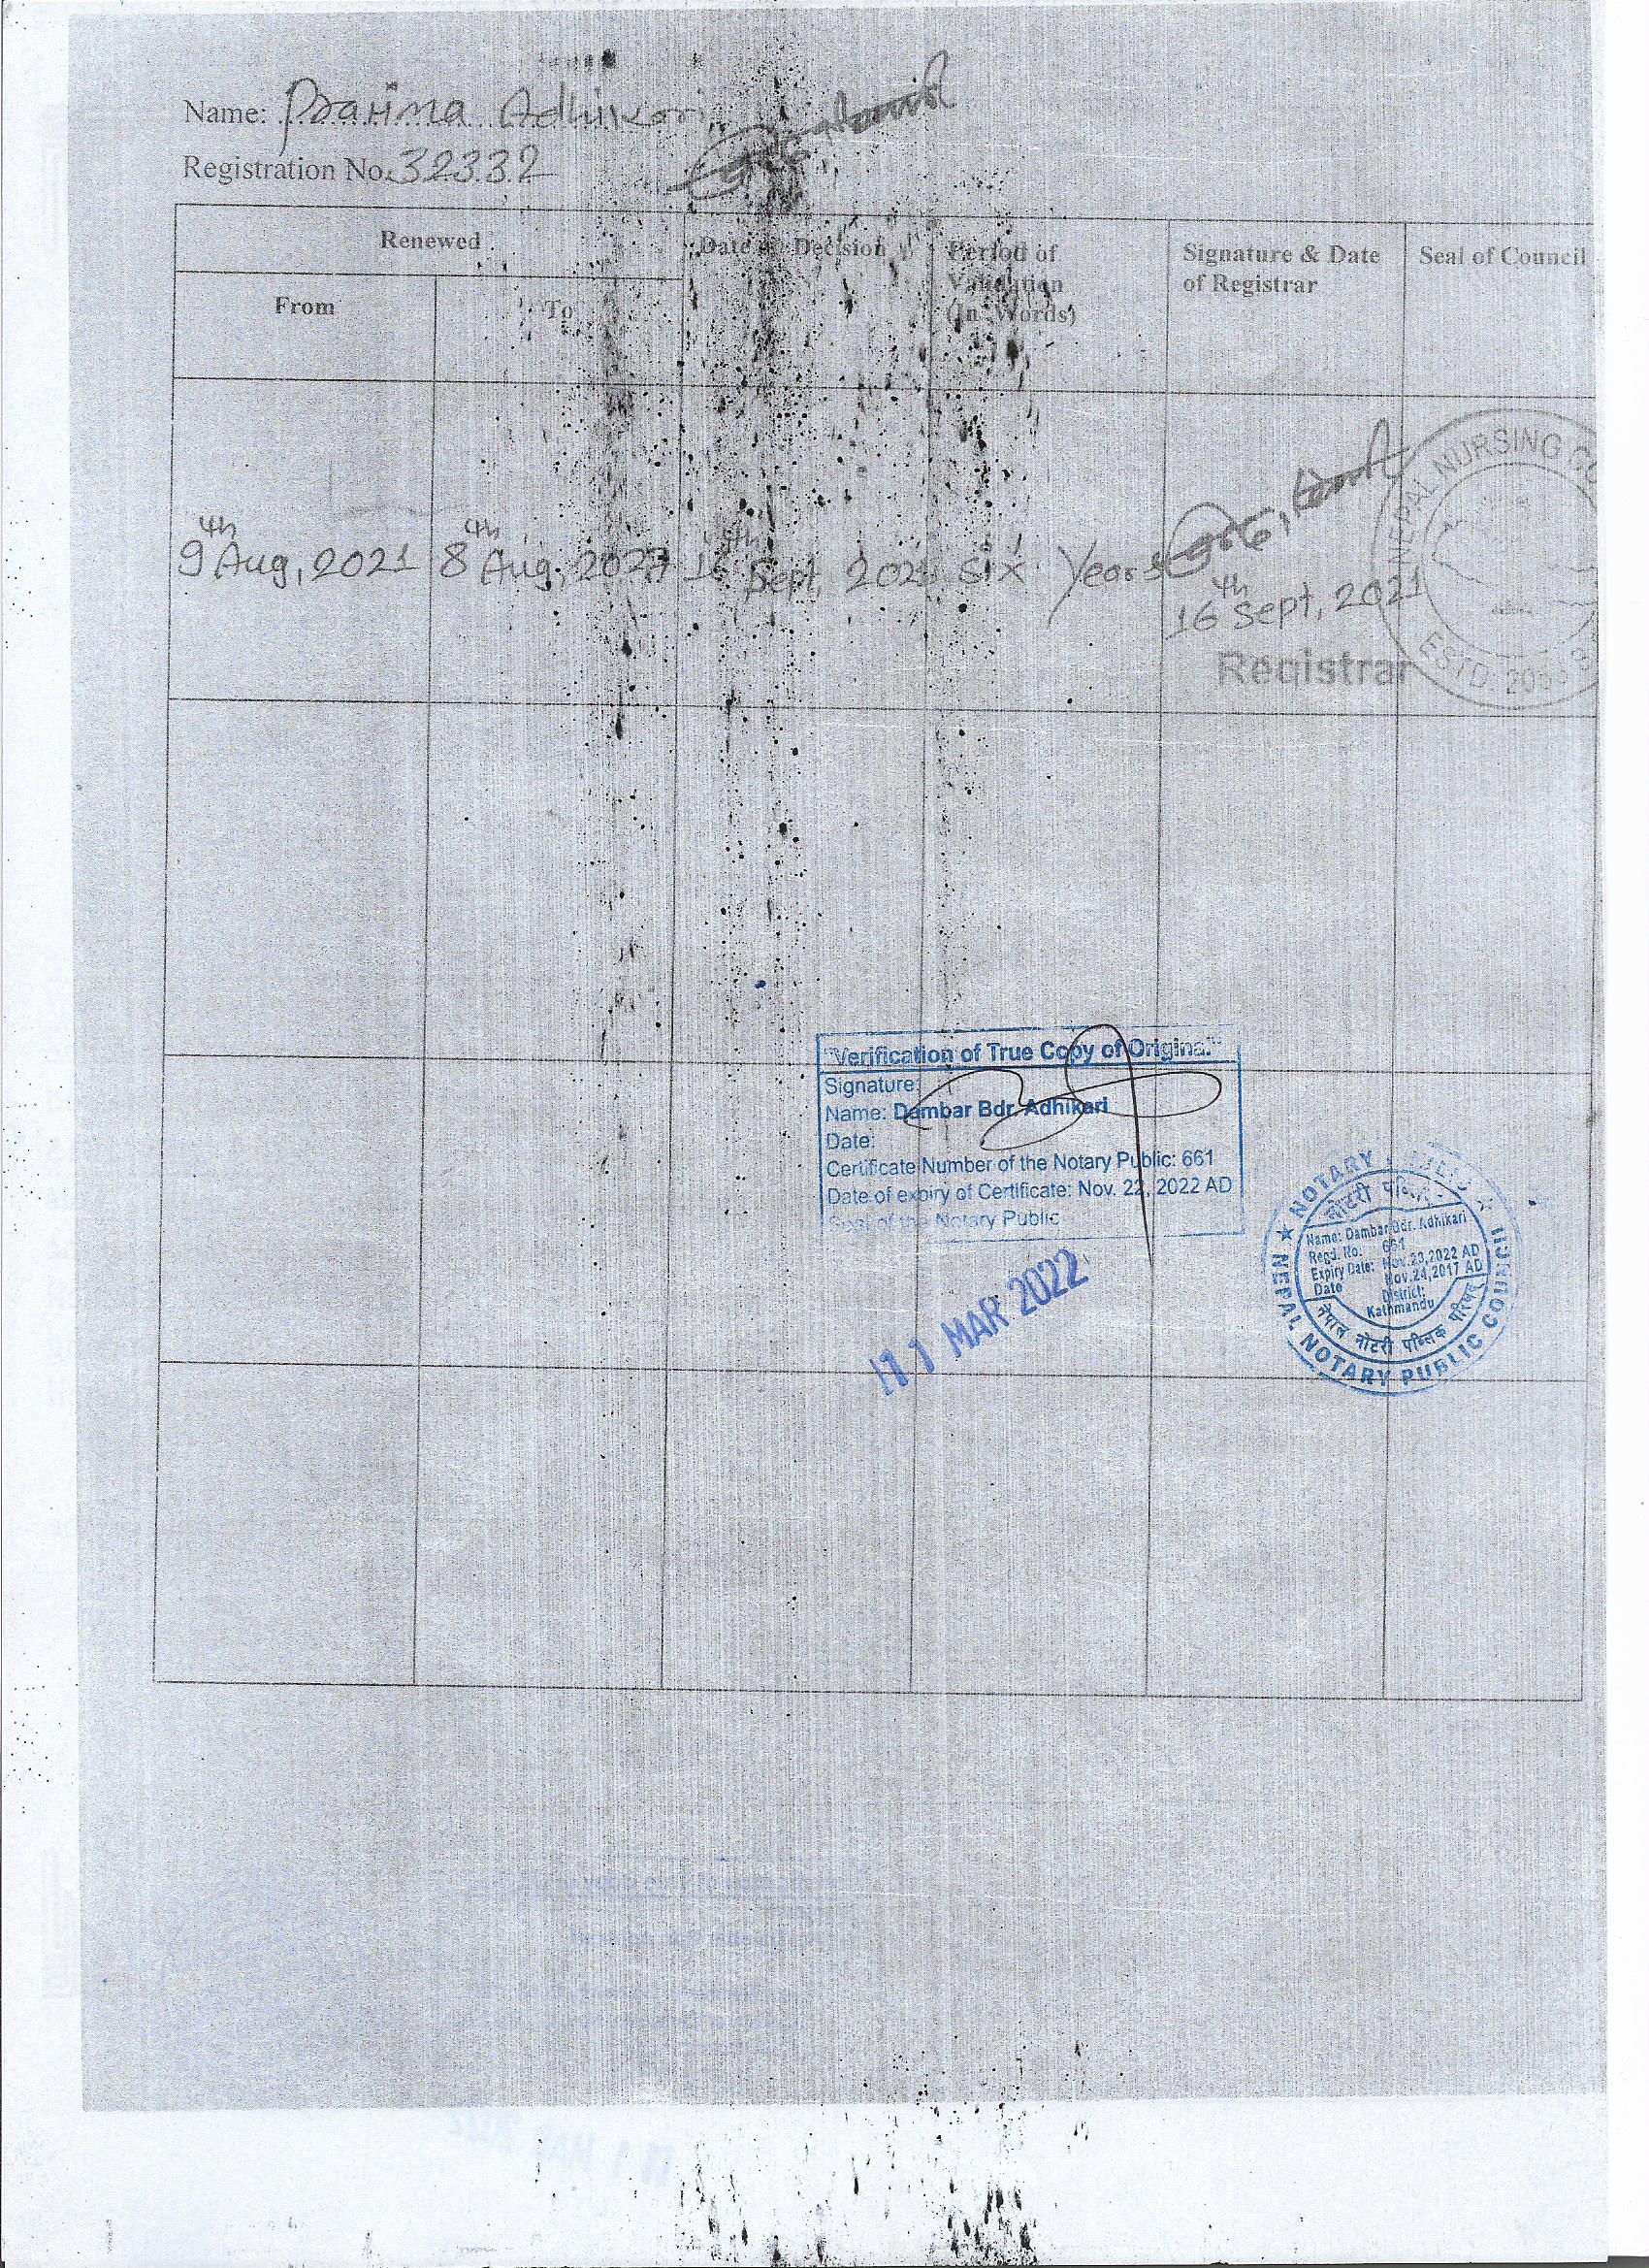 Name: Pratima Adhikari
Registration No. 32332
Renewed
Date of Decision
Period of
Validation
(In Words)
Signature & Date
of Registrar
Seal of Council
From
To
9th Aug, 2021
8th Aug, 2027
16th Sept, 2021
Six Years
16th Sept, 2021
Registrar
NEPAL NURSING CO
ESTD. 205
"Verification of True Copy of Original"
Signature:
Name: Dambar Bdr. Adhikari
Date:
Certificate Number of the Notary Public: 661
Date of expiry of Certificate: Nov. 22, 2022 AD
Seal of the Notary Public
11 MAR 2022
★ NOTARY PUBLIC ★
नोटरी पब्लिक
Name: Dambar Bdr. Adhikari
Regd. No. 661
Expiry Date: Nov.23,2022 AD
Date Nov.24,2017 AD
District:
Kathmandu
नेपाल नोटरी पब्लिक परिषद
NEPAL NOTARY PUBLIC COUNCIL